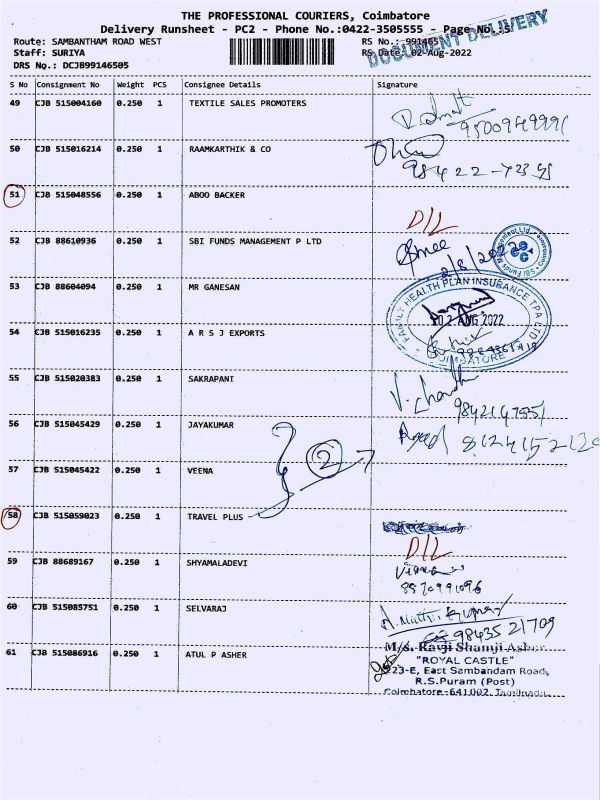 THE PROFESSIONAL COURIERS, Coimbatore
Delivery Runsheet - PC2 - Phone No.:0422-3505555 - Page No.:5
DOCUMENT DELIVERY
Route: SAMBANTHAM ROAD WEST
RS No.: 991465
Staff: SURIYA
RS Date: 02-Aug-2022
DRS No.: DCJB99146505
S No Consignment No Weight PCS Consignee Details Signature
49 CJB 515004160 0.250 1 TEXTILE SALES PROMOTERS
50 CJB 515016214 0.250 1 RAAMKARTHIK & CO
51 CJB 515048556 0.250 1 ABOO BACKER
D/L
52 CJB 88610936 0.250 1 SBI FUNDS MANAGEMENT P LTD
2/8/2022
53 CJB 88604094 0.250 1 MR GANESAN
FAMILY HEALTH PLAN INSURANCE TPA LTD
02 AUG 2022
COIMBATORE
54 CJB 515016235 0.250 1 A R S J EXPORTS
55 CJB 515020383 0.250 1 SAKRAPANI
56 CJB 515045429 0.250 1 JAYAKUMAR
2
57 CJB 515045422 0.250 1 VEENA
58 CJB 515059023 0.250 1 TRAVEL PLUS
D/L
59 CJB 88689167 0.250 1 SHYAMALADEVI
8870991096
60 CJB 515085751 0.250 1 SELVARAJ
98435 21709
61 CJB 515086916 0.250 1 ATUL P ASHER
M/s. Ravji Shamji Asher
"ROYAL CASTLE"
223-E, East Sambandam Road,
R.S.Puram (Post)
Coimbatore-641002. Tamilnadu.